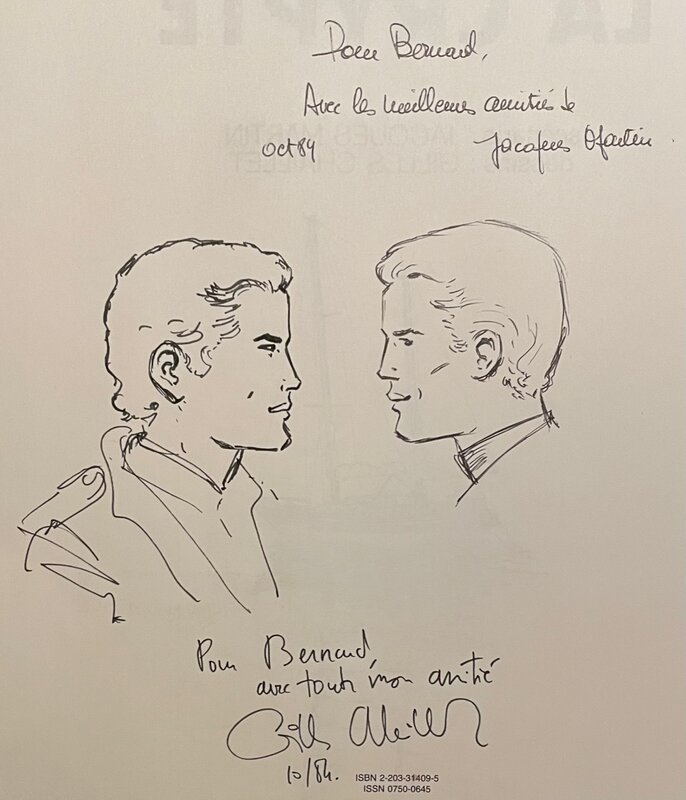 Pour Bernard,
Avec les meilleures amitiés de
oct 84 Jacques Martin
Pour Bernard,
avec toute mon amitié
Gilles Chaillet
10/84.
ISBN 2-203-31409-5
ISSN 0750-0645